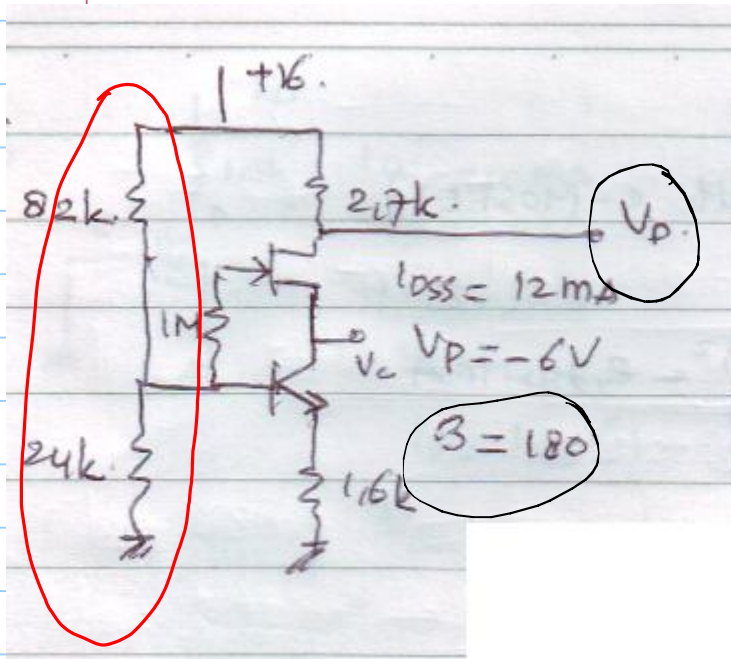 +16.
82k.
2,7k.
VD.
IDSS = 12mA
1M
Vc
VP = -6V
β = 180
24k.
1,6k